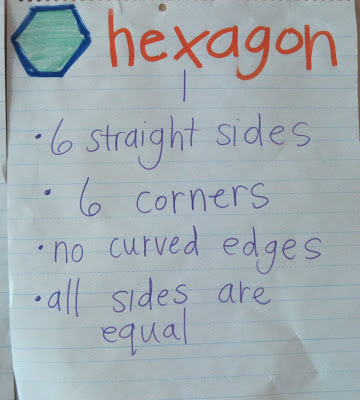 hexagon
• 6 straight sides
• 6 corners
• no curved edges
• all sides are
equal